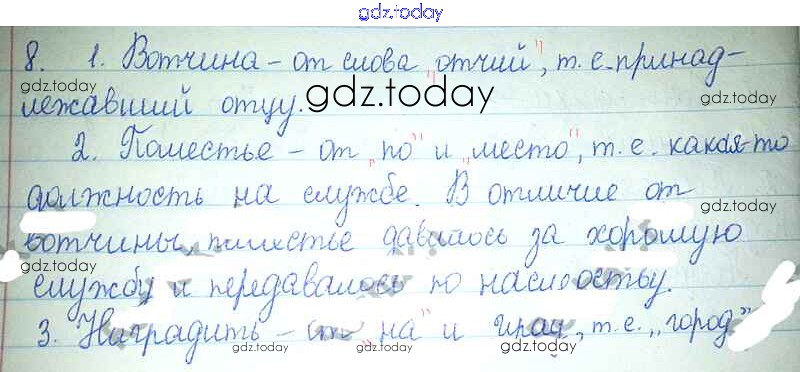 gdz.today
8. 1. Вотчина - от слова "отчий", т. е. принад-
gdz.today
лежавший отцу. gdz.today
2. Поместье - от "по" и "место", т. е. какая-то
gdz.today
должность на службе. В отличие от
gdz.today
вотчины, поместье давалось за хорошую
gdz.today
службу и передавалось по наследству.
gdz.today
3. Наградить - от "на" и град, т. е. "город"
gdz.today gdz.today gdz.today